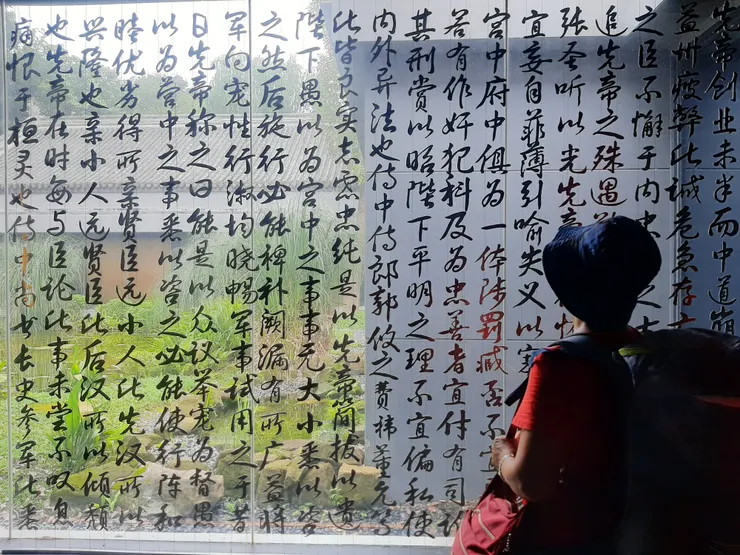 先帝创业未半而中道崩
益州疲弊此诚危急存亡
之臣不懈于内忠之士
追先帝之殊遇
张圣听以光先帝恢
宜妄自菲薄引喻失义以塞
宫中府中俱为一体陟罚臧否不宜
若有作奸犯科及为忠善者宜付有司
其刑赏以昭陛下平明之理不宜偏私使
内外异法也侍中侍郎郭攸之费祎董允等
此皆良实志虑忠纯是以先帝简拔以遗
陛下愚以为宫中之事事无大小悉以咨
之然后施行必能裨补阙漏有所广益将
军向宠性行淑均晓畅军事试用之于昔
日先帝称之曰能是以众议举宠为督愚
以为营中之事悉以咨之必能使行阵和
睦优劣得所亲贤臣远小人此先汉所以
兴隆也亲小人远贤臣此后汉所以倾颓
也先帝在时每与臣论此事未尝不叹息
痛恨于桓灵也侍中尚书长史参军此悉